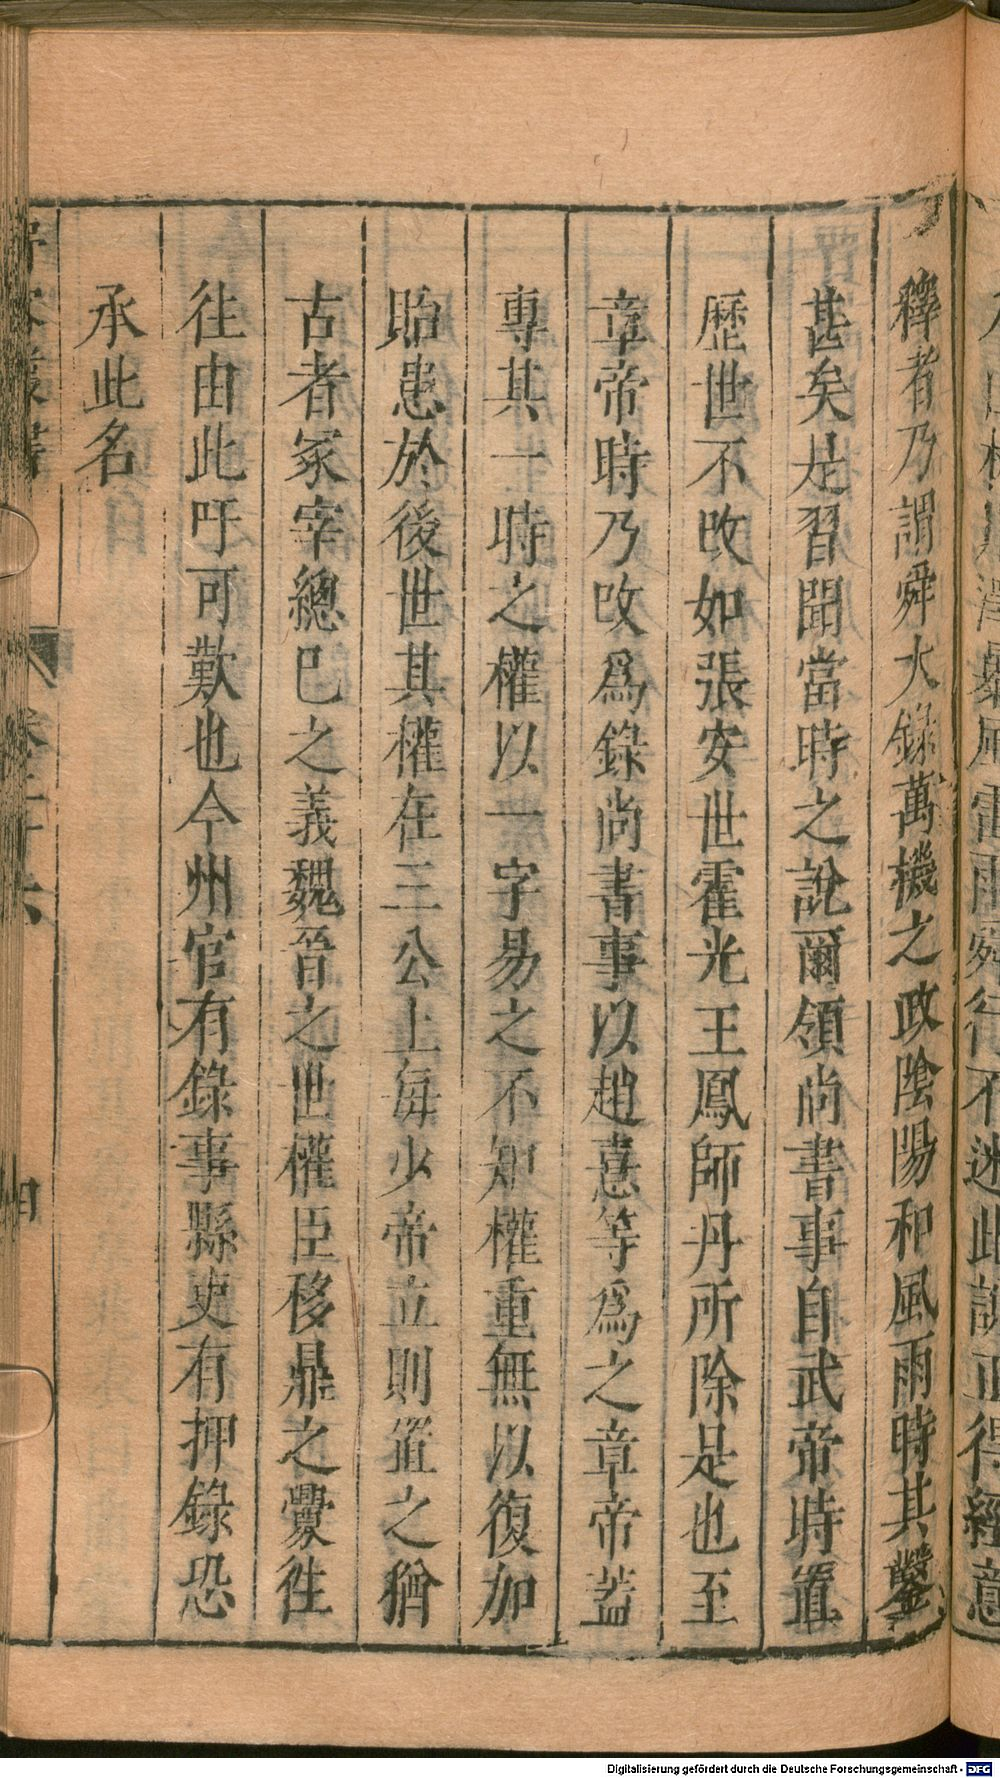 經意
釋者乃謂舜大錄萬機之政陰陽和風雨時其鑿
甚矣是習聞當時之說爾領尚書事自武帝時置
歷世不改如張安世霍光王鳳師丹所除是也至
章帝時乃改爲錄尚書事以趙憙等爲之章帝蓋
專其一時之權以一字易之不知權重無以復加
貽患於後世其權在三公上每少帝立則置之猶
古者冢宰總已之義魏晉之世權臣移鼎之釁徃
往由此吁可歎也今州官有錄事縣吏有押錄恐
承此名
Digitalisierung gefördert durch die Deutsche Forschungsgemeinschaft - DFG